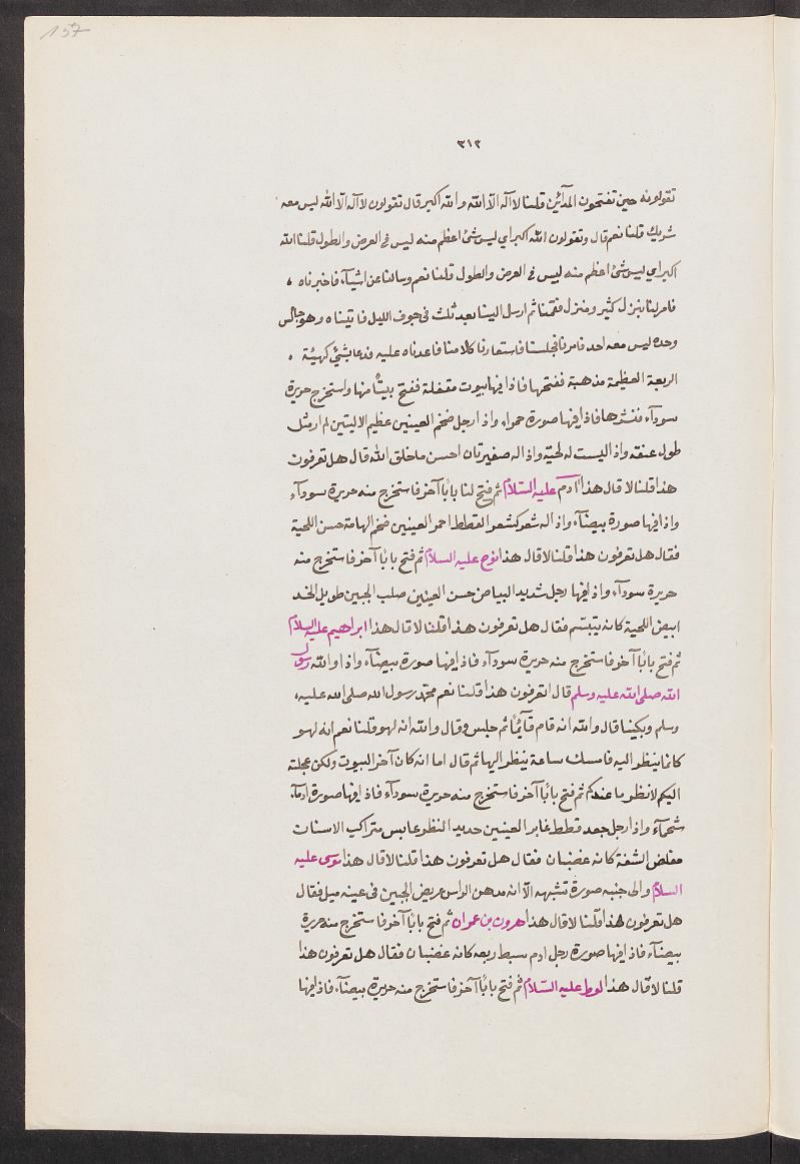 157
٣١٢
تقولونه حين تفتحون المدآئن قلنا لا اله الا الله والله اكبر قال تقولون لا اله الا الله ليس معه
شريك قلنا نعم قال وتقولون الله اكبر اي ليس شئ اعظم منه ليس في العرض والطول قلنا الله
اكبر اي ليس شئ اعظم منه ليس في العرض والطول قلنا نعم وسالنا عن اشيآء فاخبرناه ،
فامر لنا بنزل كثير ومنزل فقمنا ثم ارسل الينا بعد ثلث في جوف الليل فاتيناه وهو جالس
وحده ليس معه احد فامرنا فجلسنا فاستعادنا كلامنا فاعدناه عليه فدعا بشئ كهيئة ،
الربعة العظيمة مذهبة ففتحها فاذا فيها بيوت مقفلة ففتح بيتًا منها واستخرج حريرة
سودآء فنشرها فاذا فيها صورة حمراء واذا رجل ضخم العينين عظيم الاليتين لم ار مثل
طول عنقه واذا ليست له لحية واذا له ضفيرتان احسن ما خلق الله قال هل تعرفون
هذا قلنا لا قال هذا آدم عليه السلام ثم فتح لنا بابا آخر فاستخرج منه حريرة سودآء
واذا فيها صورة بيضآء واذا له شعر كشعر القطط احمر العينين ضخم الهامة حسن اللحية
فقال هل تعرفون هذا قلنا لا قال هذا نوح عليه السلام ثم فتح بابا آخر فاستخرج منه
حريرة سودآء واذا فيها رجل شديد البياض حسن العينين صلب الجبين طويل الخد
ابيض اللحية كانه يتبسّم فقال هل تعرفون هذا قلنا لا قال هذا ابراهيم عليه السلام
ثم فتح بابا آخر فاستخرج منه حريرة سودآء فاذا فيها صورة بيضآء واذا والله رسول
الله صلى الله عليه وسلم قال اتعرفون هذا قلنا نعم محمّد رسول الله صلى الله عليه ،
وسلم وبكينا قال والله انه قام قآئمًا ثم جلس وقال والله انه لهو قلنا نعم انه لهو
كانما ينظر اليه فامسك ساعة ينظر اليها ثم قال اما انه كان آخر البيوت ولكن عجلته
اليكم لانظر ما عندكم ثم فتح بابا آخر فاستخرج منه حريرة سودآء فاذا فيها صورة ادمآء
شحمآء واذا رجل جعد قطط غاير العينين حديد النظر عابس متراكب الاسنان
مقلص الشفة كانه غضبان فقال هل تعرفون هذا قلنا لا قال هذا موسى عليه
السلام والى جنبه صورة تشبهه الا انه مدهن الراس عريض الجبين في عينه ميل فقال
هل تعرفون هذا قلنا لا قال هذا هرون بن عمران ثم فتح بابا آخر فاستخرج منه حريرة
بيضآء فاذا فيها صورة رجل ادم سبط ربعه كانه غضبان فقال هل تعرفون هذا
قلنا لا قال هذا لوط عليه السّلام ثم فتح بابا آخر فاستخرج منه حريرة بيضآء فاذا فيها